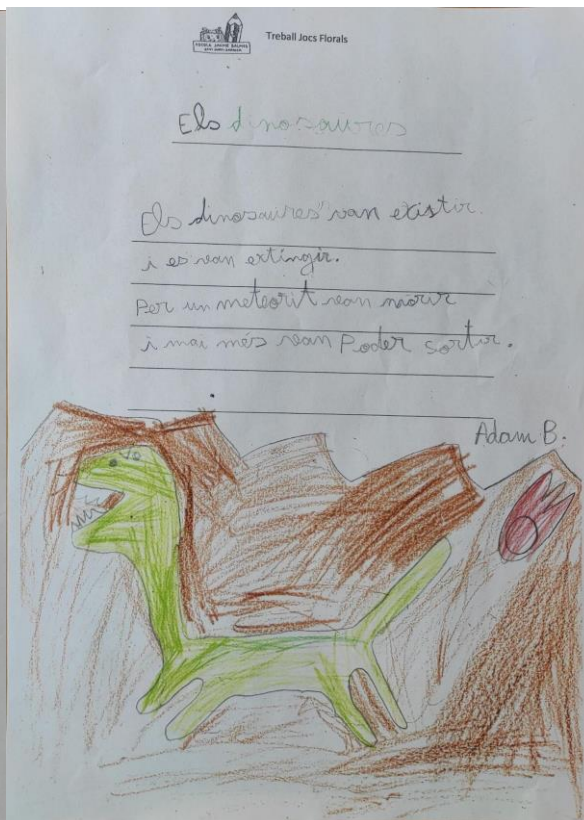 ESCOLA JAUME BALMES
Treball Jocs Florals
Els dinosaures
Els dinosaures van existir
i es van extingir.
Per un meteorit van morir
i mai més van Poder sortir.
Adam B.